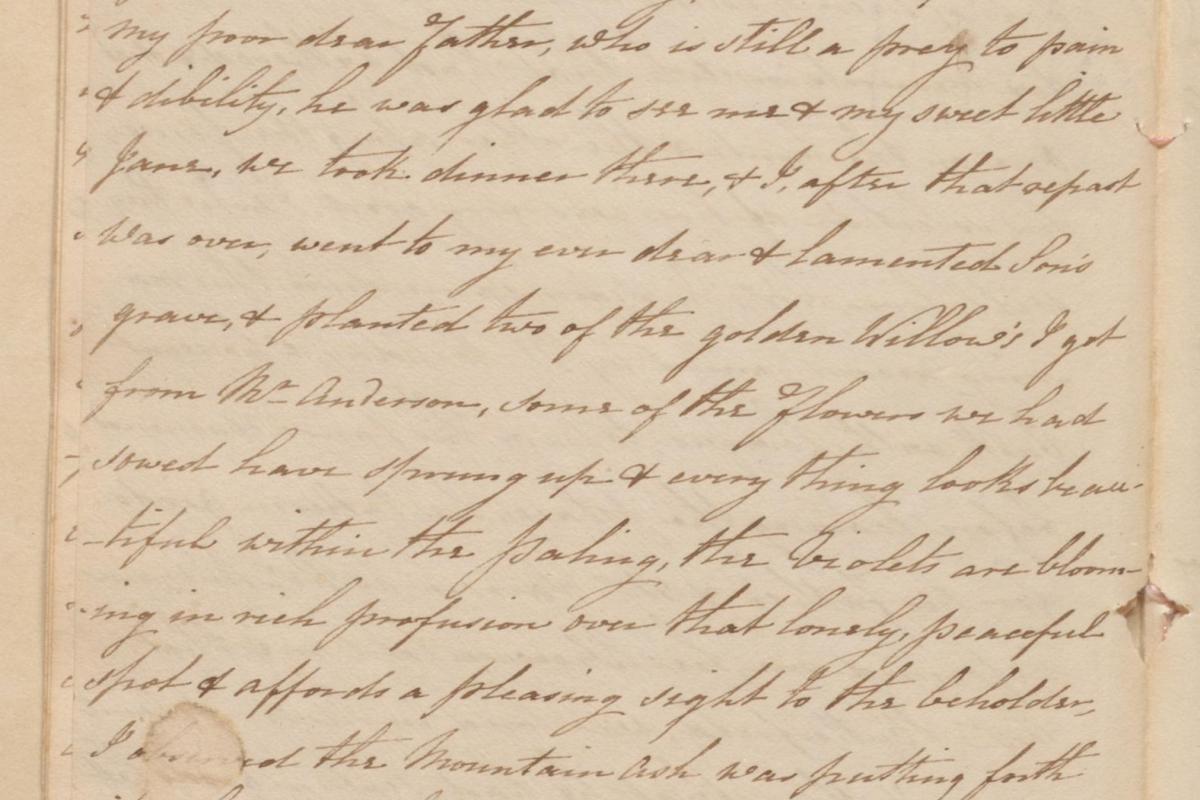 my poor dear Father, who is still a prey to pain
& dibility, he was glad to see me & my sweet little
Jane, we took dinner there, & I, after that repast
was over, went to my ever dear & lamented Son's
grave, & planted two of the golden Willow's I got
from Mr Anderson, some of the Flowers we had
sowed have sprung up & every thing looks beau-
-tiful within the paling, the Violets are bloom-
-ing in rich profusion over that lonely, peaceful
spot & affords a pleasing sight to the beholder,
I observed the Mountain Ash was putting forth